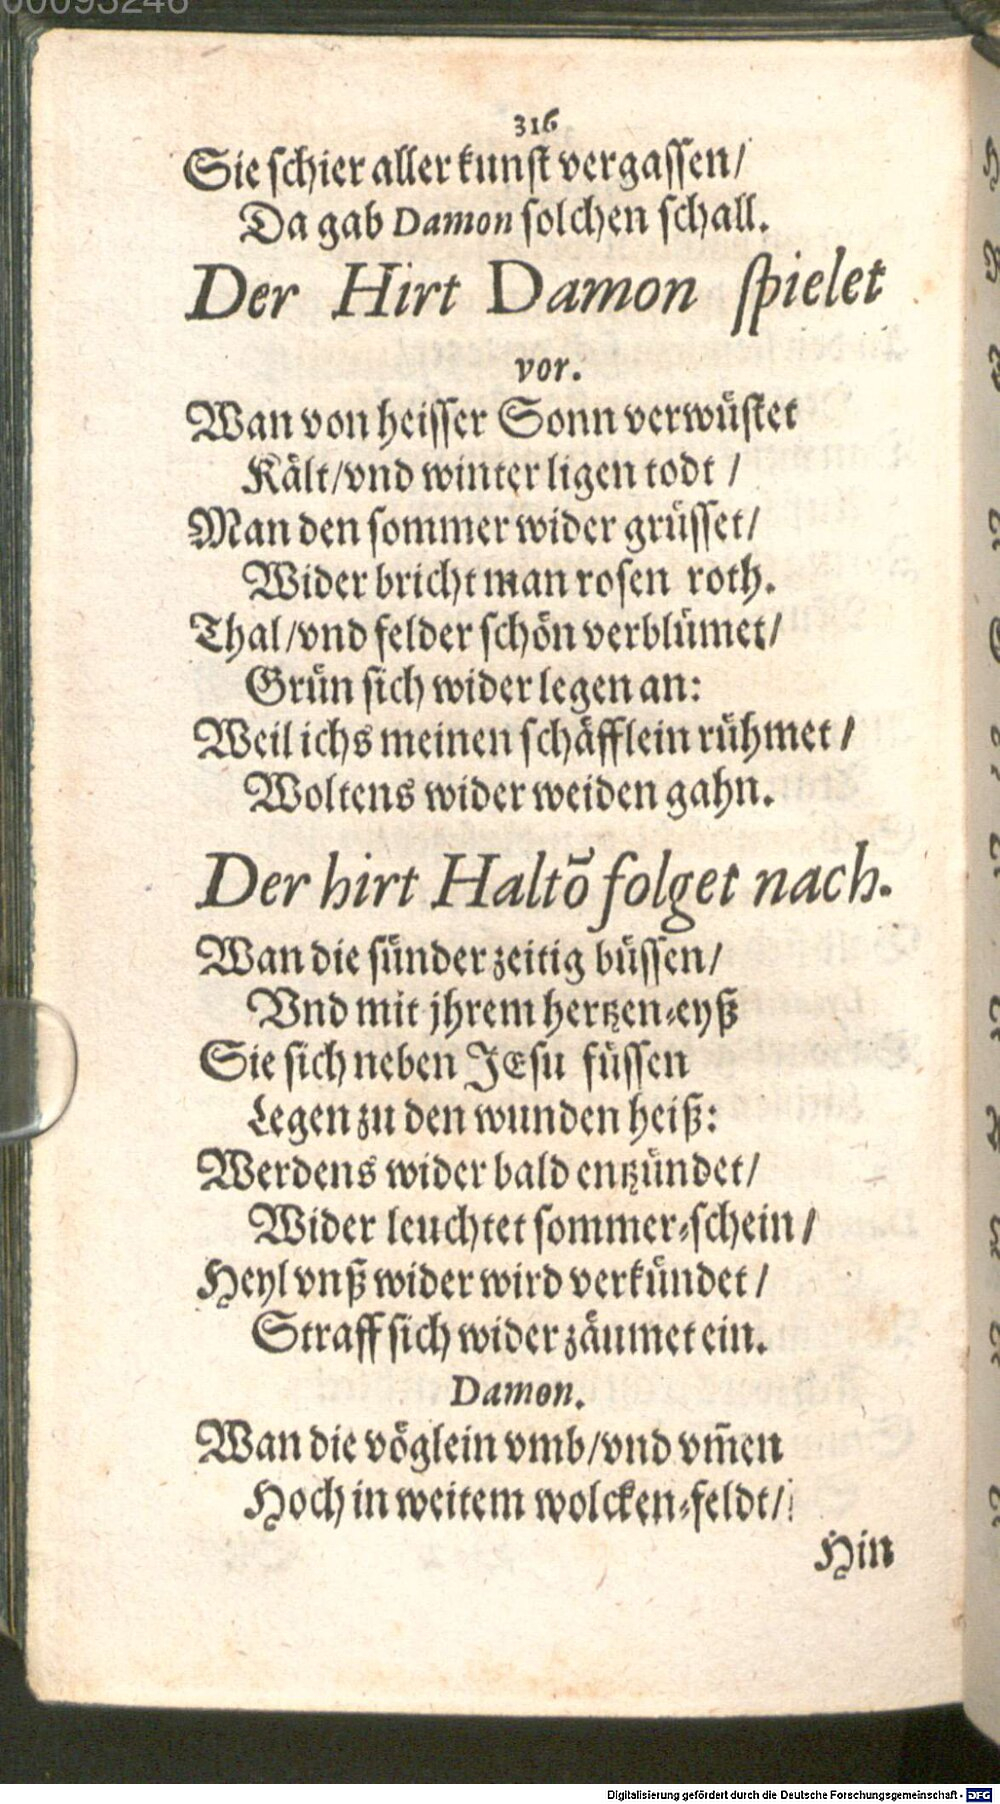 00093246
316
Sie schier aller kunst vergassen/
Da gab Damon solchen schall.
Der Hirt Damon spielet
vor.
Wan von heisser Sonn verwüstet
Kält/vnd winter ligen todt /
Man den sommer wider grüsset/
Wider bricht man rosen roth.
Thal/vnd felder schön verblümet/
Grün sich wider legen an:
Weil ichs meinen schäfflein rühmet /
Woltens wider weiden gahn.
Der hirt Haltõ folget nach.
Wan die sünder zeitig büssen/
Vnd mit jhrem hertzen-eyß
Sie sich neben JEsu füssen
Legen zu den wunden heiß:
Werdens wider bald entzündet/
Wider leuchtet sommer-schein /
Heyl vnß wider wird verkündet /
Straff sich wider zäumet ein.
Damon.
Wan die vöglein vmb/vnd vm̃en
Hoch in weitem wolcken-feldt/
Hin
Digitalisierung gefördert durch die Deutsche Forschungsgemeinschaft - DFG